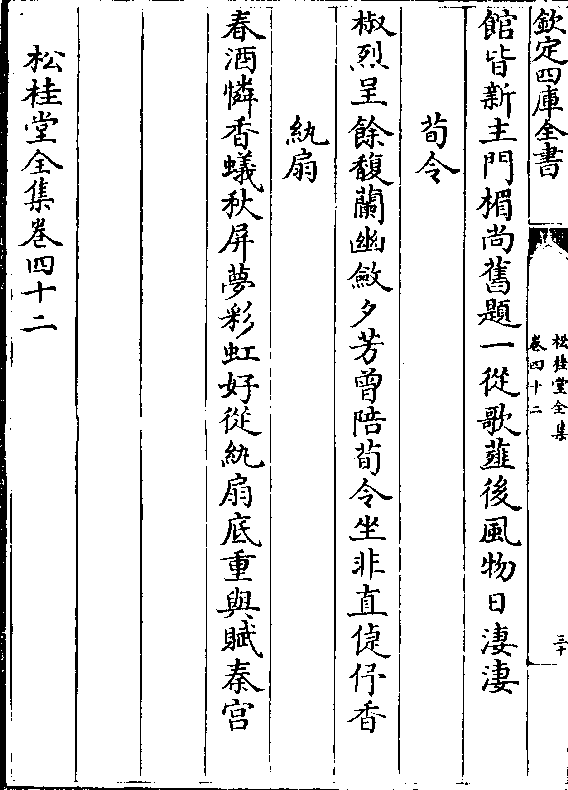 欽定四庫全書
松桂堂全集
卷四十二
三十
館皆新主門楣尚舊題一從歌薤後風物日淒淒
荀令
椒烈呈餘馥蘭幽斂夕芳曾陪荀令坐非直倢伃香
紈扇
春酒憐香蟻秋屏夢彩虹好從紈扇底重與賦秦宮
松桂堂全集卷四十二